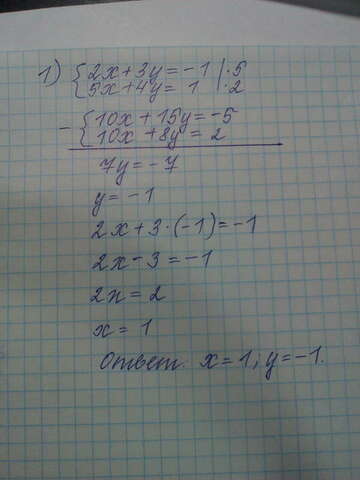 1) {2x+3y=-1 | ·5
{5x+4y= 1 | ·2
- {10x+15y=-5
{10x+8y= 2
7y=-7
y=-1
2x+3·(-1)=-1
2x-3=-1
2x=2
x=1
Ответ. x=1; y=-1.